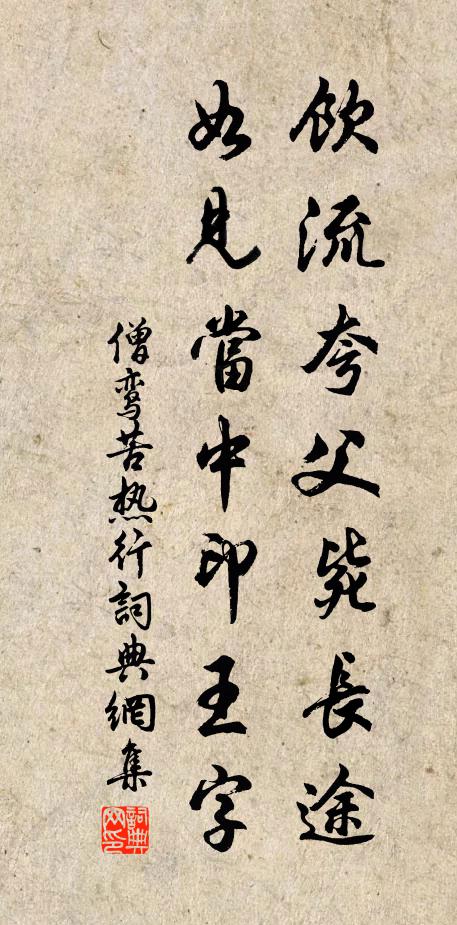 飲流夸父毙長途
如見當中印王字
僧鸾苦热行詞典網集
詞典网印